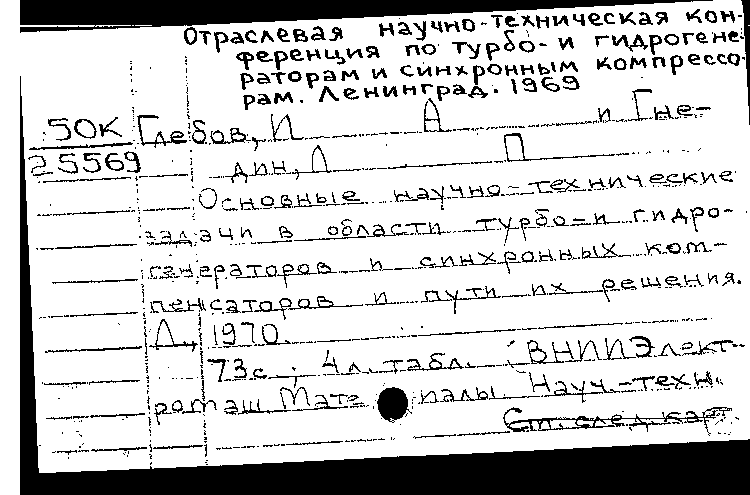 Отраслевая научно-техническая кон-
ференция по турбо- и гидрогене-
раторам и синхронным компрессо-
рам. Ленинград. 1969
50К
25569
Глебов, И А и Гне-
дин, Л П
Основные научно-технические
задачи в области турбо- и гидро-
генераторов и синхронных ком-
пенсаторов и пути их решения.
Л., 1970.
73с.; 4л. табл. (ВНИИЭлект-
ромаш. Мате иалы. Науч.-техн.
См. след. кар